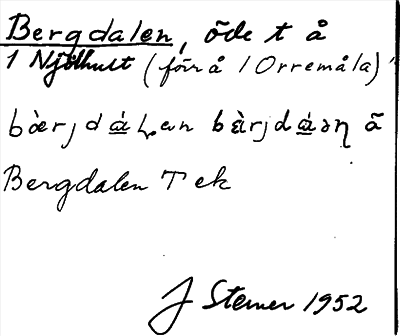 Bergdalen, öde t å
1 Njölhult (förr å 1 Orremåla)
bæ̀rjdá̲ļen bæ̀rjdá̲əη ã
Bergdalen T ek
J Sterner 1952